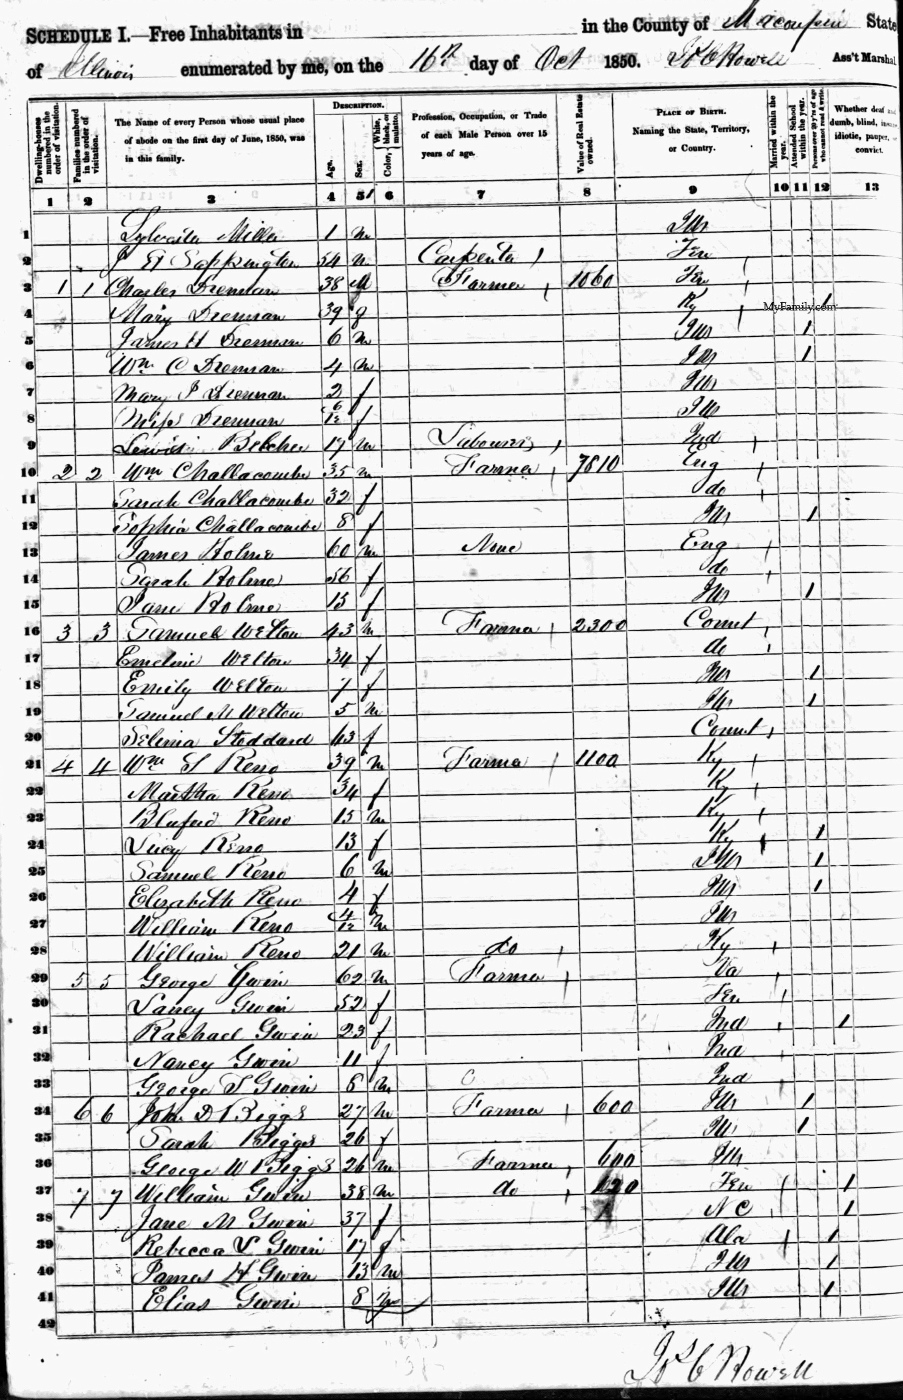 SCHEDULE I.—Free Inhabitants in in the County of Macoupin State
of Illinois enumerated by me, on the 16th day of Oct 1850. Howell Ass't Marshal
Dwelling-houses numbered in the order of visitation.
Families numbered in the order of visitation.
The Name of every Person whose usual place of abode on the first day of June, 1850, was in this family.
DESCRIPTION.
Age.
Sex.
Color, White, black, or mulatto.
Profession, Occupation, or Trade of each Male Person over 15 years of age.
Value of Real Estate owned.
PLACE OF BIRTH. Naming the State, Territory, or Country.
Married within the year.
Attended School within the year.
Persons over 20 y'rs of age who cannot read & write.
Whether deaf and dumb, blind, insane, idiotic, pauper, or convict.
1 2 3 4 5 6 7 8 9 10 11 12 13
1 Sylvester Miller 1 m Ills
2 J H Sappington 54 m Carpenter Ten
3 1 1 Charles Drennan 38 M Farmer 1060 Ten
4 Mary Drennan 39 f Ky 1
MyFamily.com
5 James H Drennan 6 m Ills 1
6 Wm C Drennan 4 m Ills 1
7 Mary J Drennan 2 f Ills
8 Drennan 6/12 f Ills
9 Lewis Belcher 17 m Labourer Ind
10 2 2 Wm Challacombe 35 m Farmer 7810 Eng
11 Sarah Challacombe 32 f do
12 Sophia Challacombe 8 f Ills 1
13 James Holme 60 m None Eng
14 Sarah Holme 56 f do
15 Jane Holme 15 f Ills 1
16 3 3 Samuel Welton 43 m Farmer 2300 Connt
17 Emeline Welton 34 f do
18 Emily Welton 7 f Ills 1
19 Samuel M Welton 5 m Ills 1
20 Selinia Stoddard 43 f Connt
21 4 4 Wm S Reno 39 m Farmer 1100 Ky
22 Martha Reno 34 f Ky
23 Bluford Reno 15 m Ky
24 Lucy Reno 13 f Ky 1
25 Samuel Reno 6 m Ills 1
26 Elizabeth Reno 4 f Ills 1
27 William Reno 4/12 m Ills
28 William Reno 21 m do Ky
29 5 5 George Gwin 62 m Farmer Va
30 Laney Gwin 52 f Ten
31 Rachael Gwin 23 f Ind 1
32 Nancy Gwin 11 f Ind
33 George S Gwin 6 m Ind
34 6 6 John D Biggs 27 m Farmer 600 Ills 1
35 Sarah Biggs 26 f Ills 1
36 George W Biggs 26 m Farmer 600 Ills
37 7 7 William Gwin 38 m do 120 Ten 1
38 Jane M Gwin 37 f N C 1
39 Rebecca V Gwin 17 f Ala 1
40 James H Gwin 13 m Ills 1
41 Elias Gwin 8 m Ills 1
42
Howell